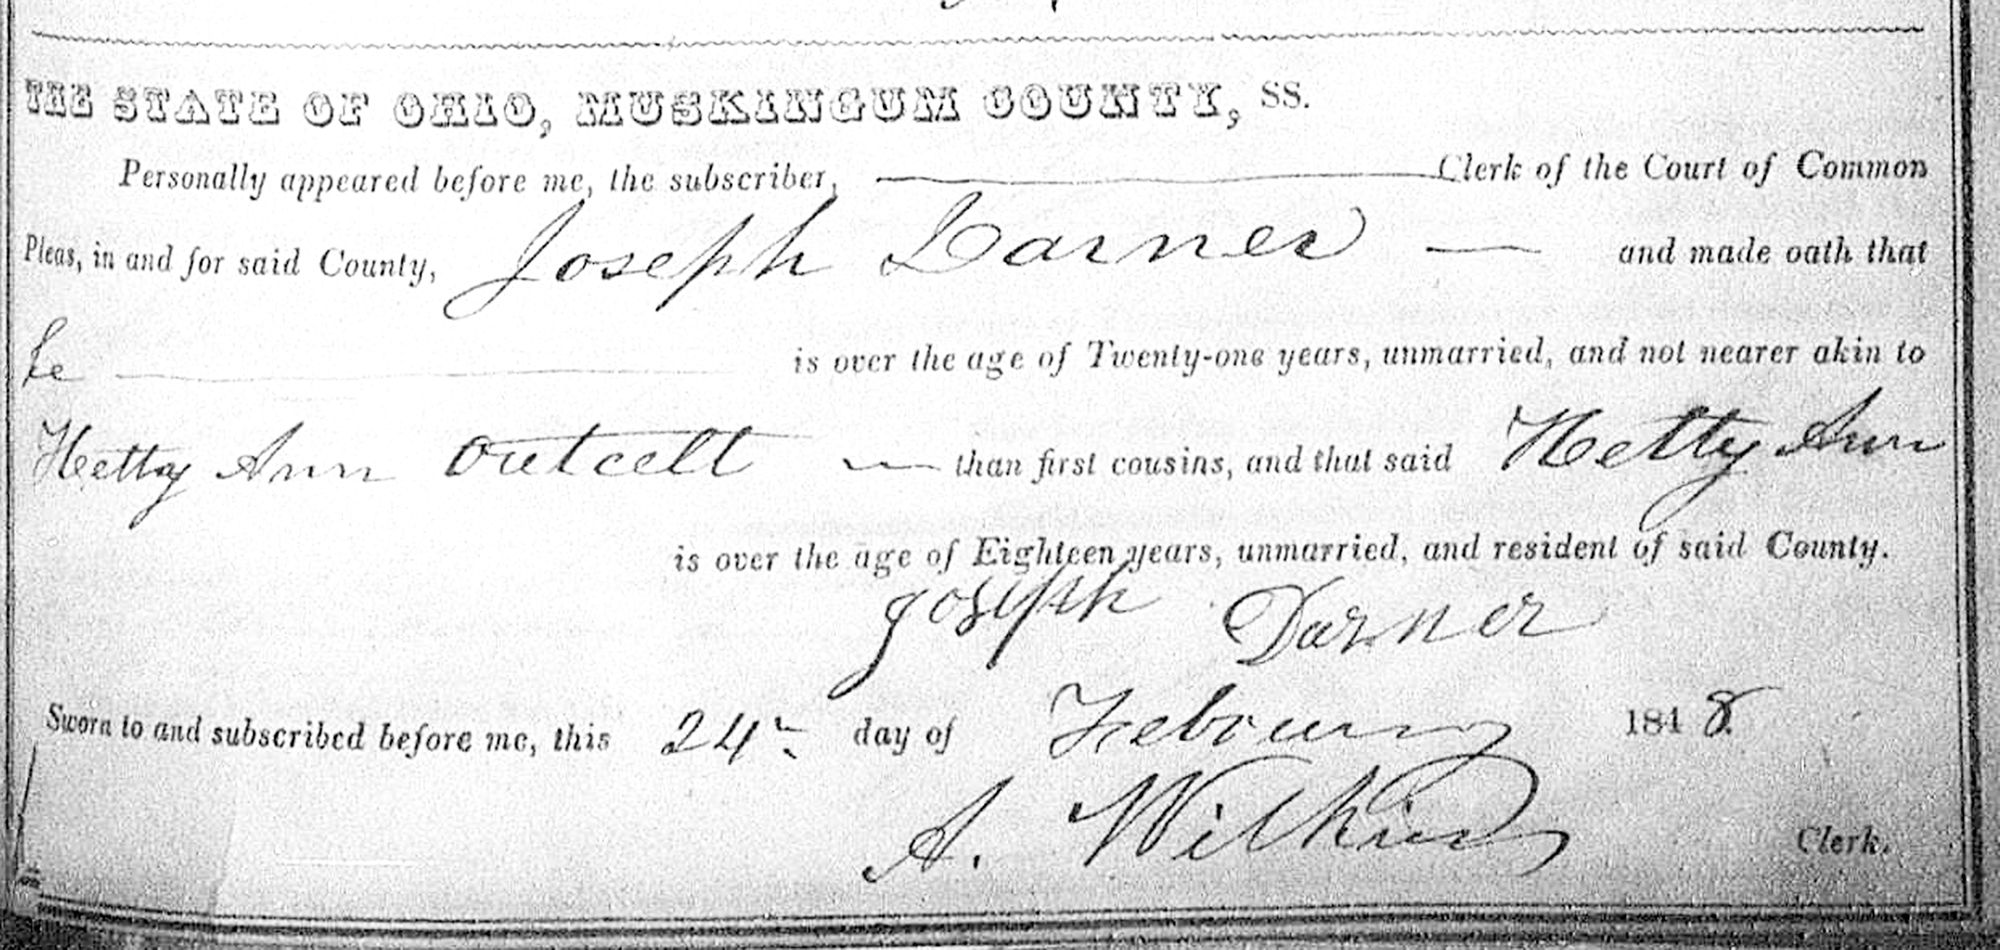 THE STATE OF OHIO, MUSKINGUM COUNTY, SS.
Personally appeared before me, the subscriber, Clerk of the Court of Common
Pleas, in and for said County, Joseph Darner — and made oath that
he is over the age of Twenty-one years, unmarried, and not nearer akin to
Hetty Ann Outcelt — than first cousins, and that said Hetty Ann
is over the age of Eighteen years, unmarried, and resident of said County.
Joseph Darner
Sworn to and subscribed before me, this 24th day of February 1848.
A. Wilkins Clerk.